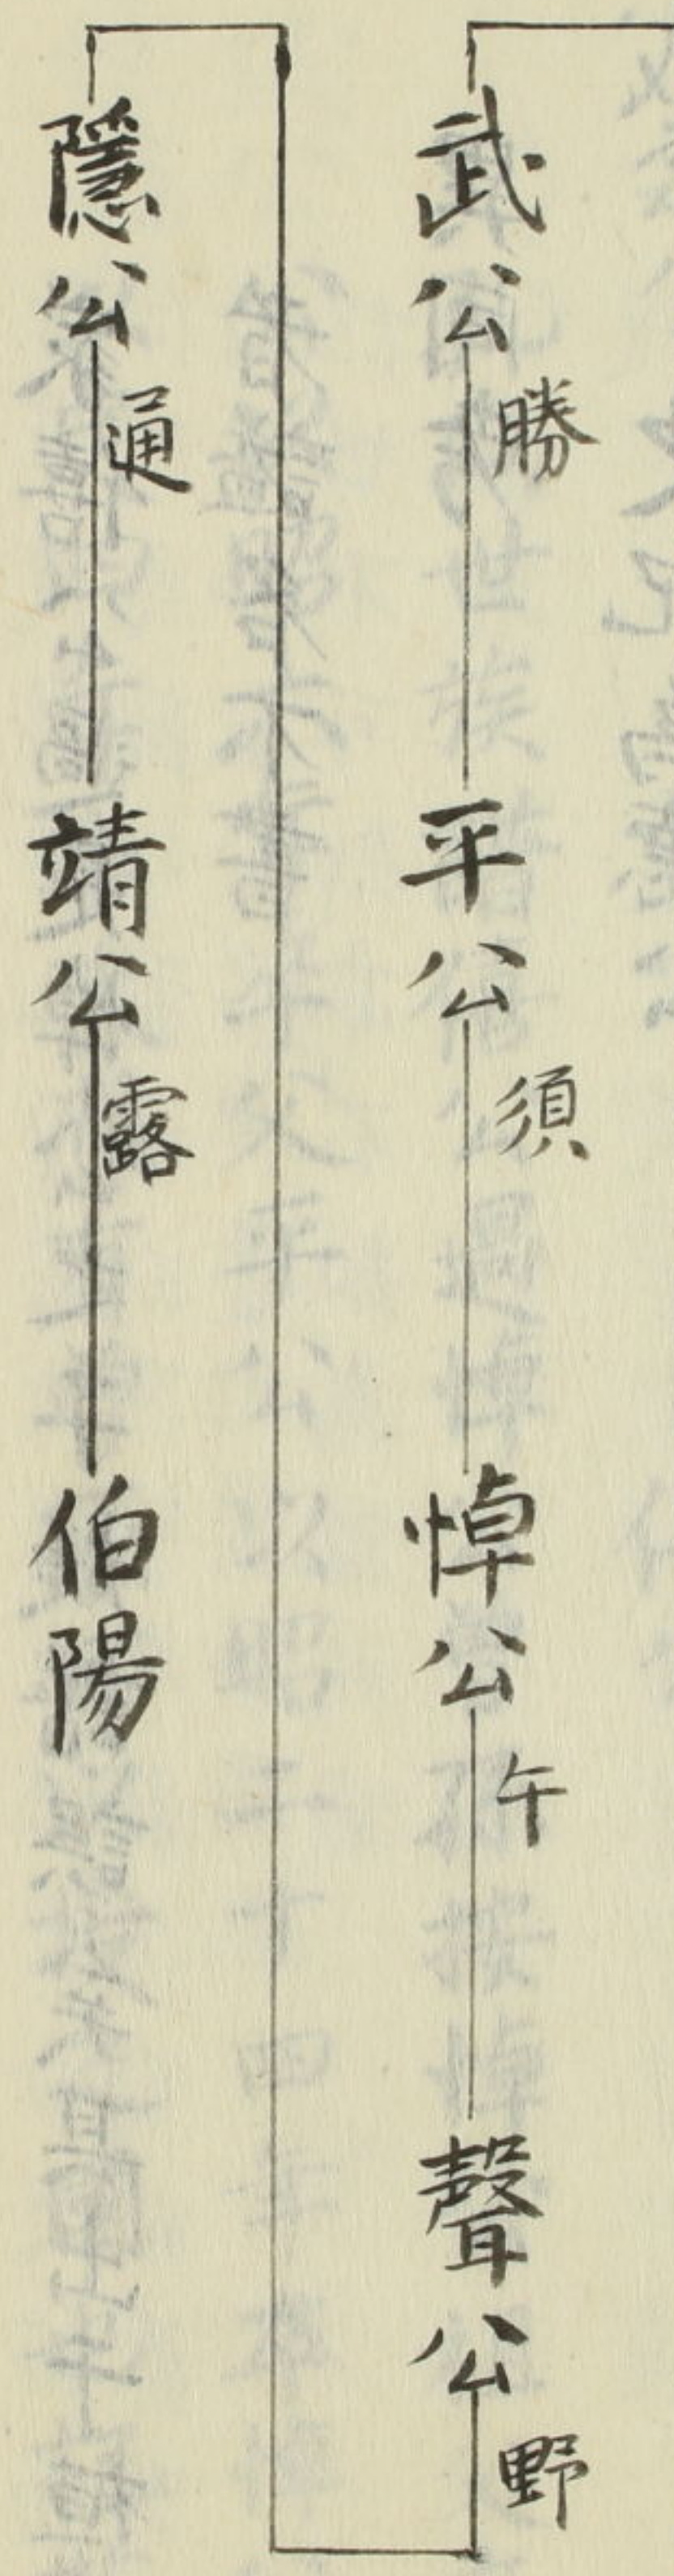 武公 勝
平公 須
悼公 午
聲公 野
隱公 通
靖公 露
伯陽